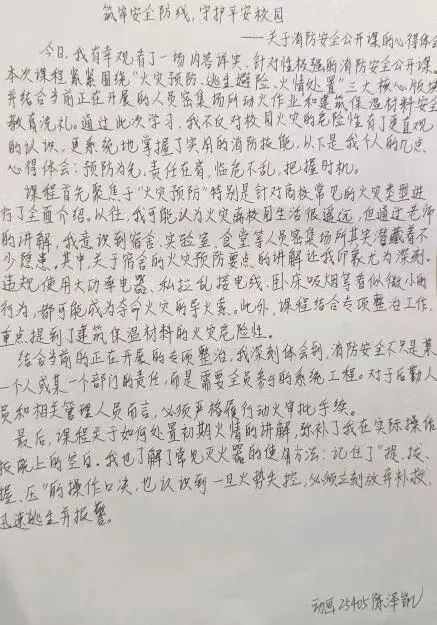 筑牢安全防线,守护平安校园
——关于消防安全公开课的心得体会
今日,我有幸观看了一场内容详实、针对性极强的消防安全公开课。
本次课程紧紧围绕"火灾预防、逃生避险、火情处置"三大核心版块
并结合当前正在开展的人员密集场所动火作业和建筑保温材料安全
教育洗礼。通过此次学习,我不仅对校园火灾的危险性有了更直观
的认识,更系统地掌握了实用的消防技能,以下是我个人的几点
心得体会:预防为先,责任在肩,临危不乱,把握时机。
课程首先聚焦于"火灾预防"特别是针对高校常见的火灾类型进
行了全面介绍。以往,我可能认为火灾离校园生活很遥远,但通过老师
的讲解,我意识到宿舍、实验室、食堂等人员密集场所其实潜藏着不
少隐患。其中,关于宿舍的火灾预防要点的讲解让我印象尤为深刻。
违规使用大功率电器、私拉乱接电线、卧床吸烟等看似微小的
行为,都可能成为夺命火灾的导火索。此外,课程结合专项整治工作,
重点提到了建筑保温材料的火灾危险性。
结合当前的正在开展的专项整治,我深刻体会到,消防安全不只是某
一个人或某一个部门的责任,而是需要全员参与的系统工程。对于后勤人
员和相关管理人员而言,必须严格履行动火审批手续。
最后,课程关于如何处置初期火情的讲解,弥补了我在实际操作
技能上的空白。我也了解了常见灭火器的使用方法:记住了"提、拔、
握、压"的操作口诀,也认识到一旦火势失控,必须立刻放弃补救,
迅速逃生并报警。
动画25405陈泽凯